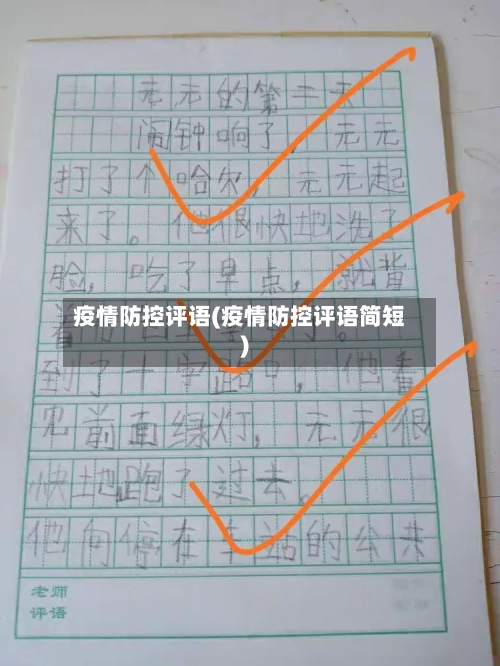 元元的第二天
闹钟响了，元元
打了个哈欠，元元起
来了。他很快地洗了
脸，吃了早点，就背
着
疫情防控评语(疫情防控评语简短
)
到了十字路口，他看
见前面绿灯，元元很
快地跑了过去。
他向停在车站的公共
老师
评语